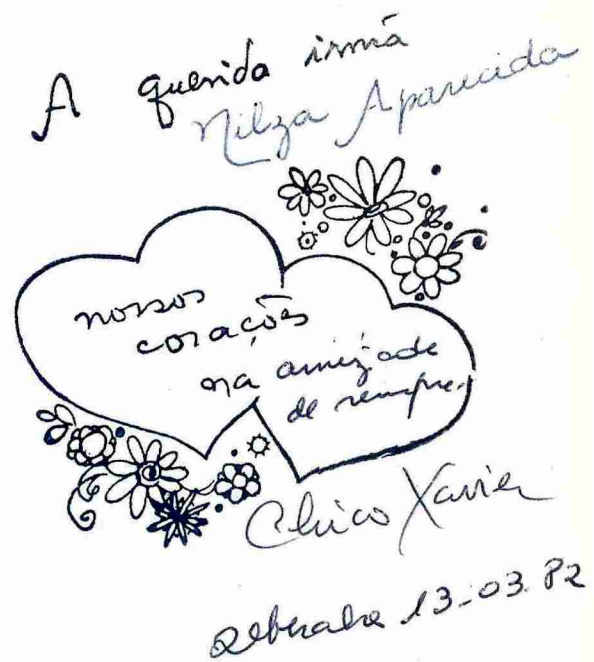 A querida irmã
Nilza Aparecida
nossos
corações
na amizade
de sempre.
Chico Xavier
Uberaba 13-03.82